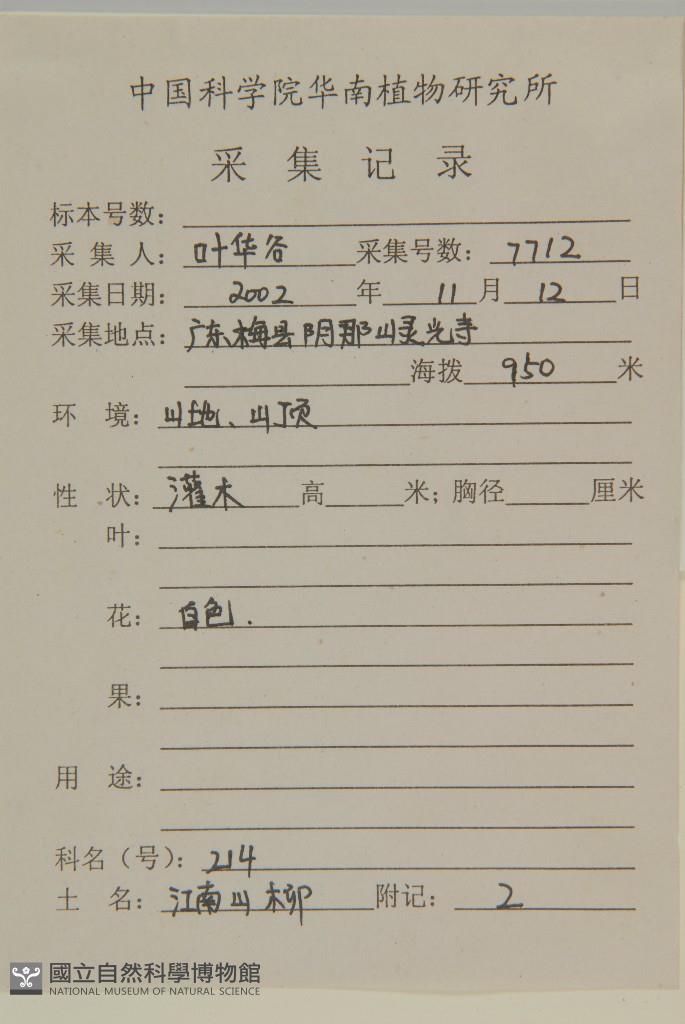 中国科学院华南植物研究所
采集记录
标本号数：
采集人：叶华谷 采集号数：7712
采集日期：2002年11月12日
采集地点：广东梅县阴那山灵光寺
海拨950米
环境：山地、山顶
性状：灌木 高 米；胸径 厘米
叶：
花：白色.
果：
用途：
科名（号）：214
土名：江南山柳 附记：2
國立自然科學博物館
NATIONAL MUSEUM OF NATURAL SCIENCE